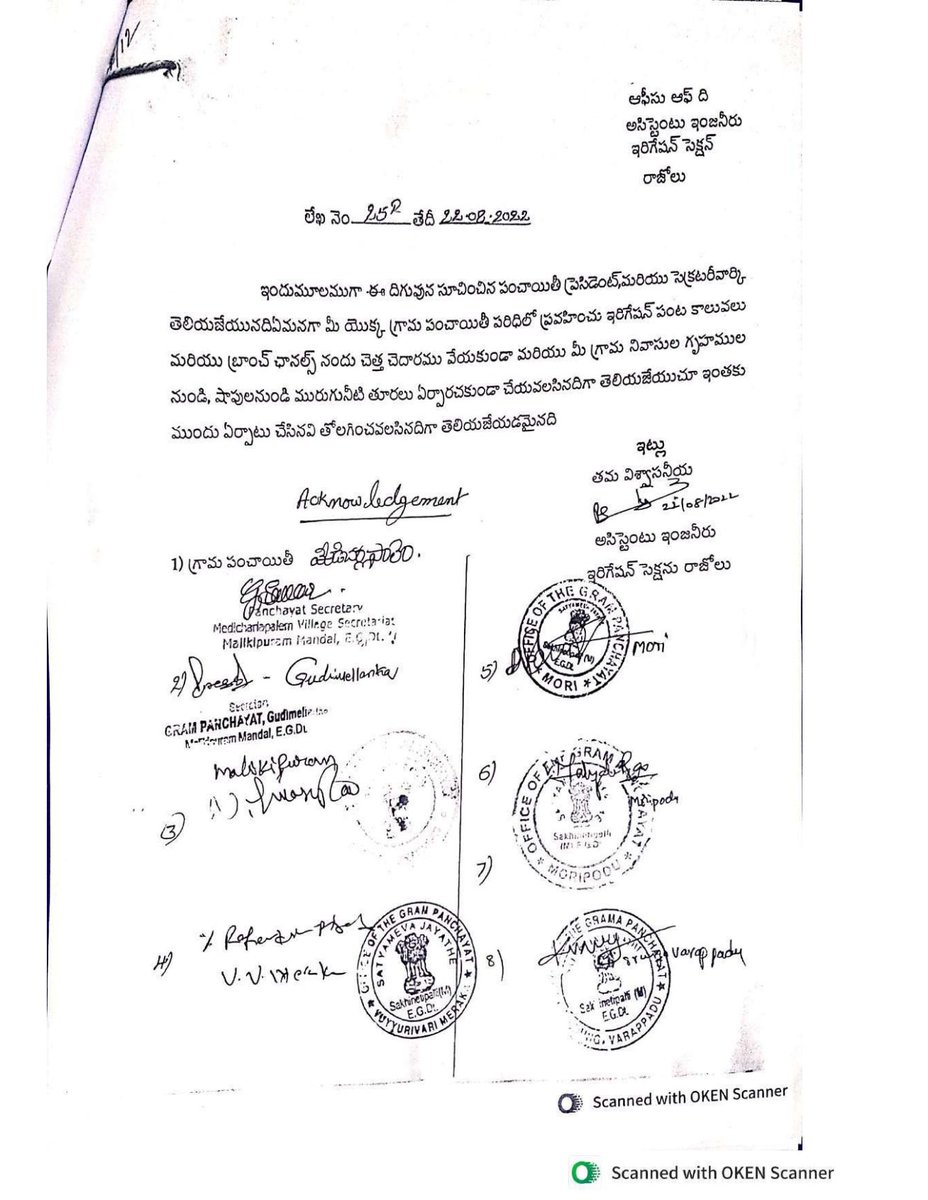 /12
ఆఫీసు ఆఫ్ ది
అసిస్టెంటు ఇంజనీరు
ఇరిగేషన్ సెక్షన్
రాజోలు
లేఖ నెం 252 తేదీ 22-08-2022
ఇందుమూలముగా ఈ దిగువున సూచించిన పంచాయితీ ప్రెసిడెంట్,మరియు సెక్రటరీవార్కి
తెలియజేయునదిఏమనగా మీ యొక్క గ్రామ పంచాయితీ పరిధిలో ప్రవహించు ఇరిగేషన్ పంట కాలువలు
మరియు బ్రాంచ్ ఛానల్స్ నందు చెత్త చెదారము వేయకుండా మరియు మీ గ్రామ నివాసుల గృహముల
నుండి, షాపులనుండి మురుగునీటి తూరలు ఏర్పారచకుండా చేయవలసినదిగా తెలియజేయుచూ ఇంతకు
ముందు ఏర్పాటు చేసినవి తోలగించవలసినదిగా తెలియజేయడమైనది
ఇట్లు
తమ విశ్వాసనీయ
22/08/2022
అసిస్టెంటు ఇంజనీరు
ఇరిగేషన్ సెక్షను రాజోలు
Acknowledgement
1) గ్రామ పంచాయితీ
Panchayat Secretary
Medicharlapalem Village Secretariat
Malikipuram Mandal, E.G.Dt.
2) - Gudimellanka
GRAM PANCHAYAT,
Mandal, E.G.Dt.
Malikipuram
3)
4)
V.V. Meraka
OFFICE OF THE GRAN PANCHAYAT
SATYAMEVA JAYATHE
Sakhinetipalli(M)
E.G.Dt.
★ VUYYURIVARI MERAKA ★
5) Mori
OFFICE OF THE GRAM PANCHAYAT
E.G.Dt
★ MORI ★
6)
Moripodu
OFFICE OF THE GRAMA PANCHAYAT
Sakhinetipalli
★ MORIPODU ★
7)
8) varappadu
THE GRAMA PANCHAYAT
Sakhinetipalli (M)
E.G.Dt.
VARAPPADU ★
Scanned with OKEN Scanner
Scanned with OKEN Scanner